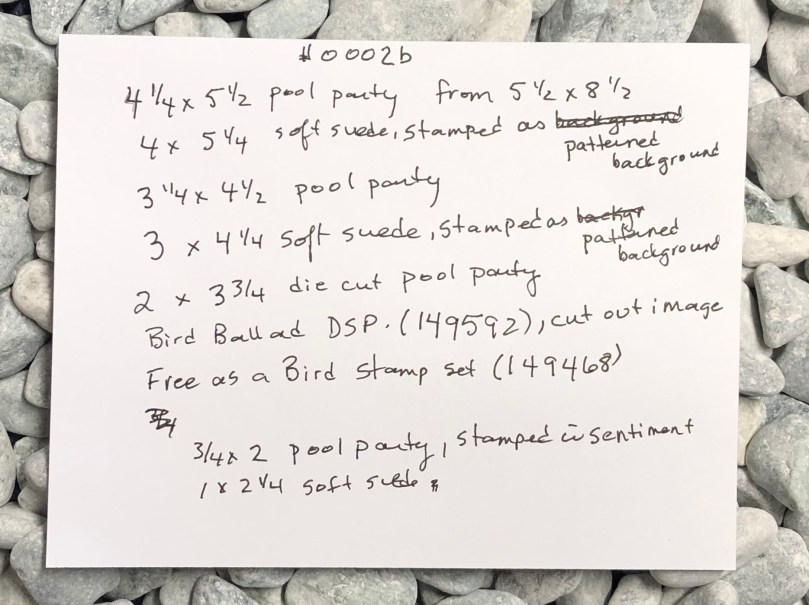 #0002b
4 1/4 x 5 1/2 pool party from 5 1/2 x 8 1/2
4 x 5 1/4 soft suede, stamped as background
patterned
background
3 1/4 x 4 1/2 pool party
3 x 4 1/4 soft suede, stamped as backgr
patterned
background
2 x 3 3/4 die cut pool party
Bird Ballad DSP. (149592), cut out image
Free as a Bird Stamp set (149468)
3/4 x 2 pool party, stamped w sentiment
1 x 2 1/4 soft suede